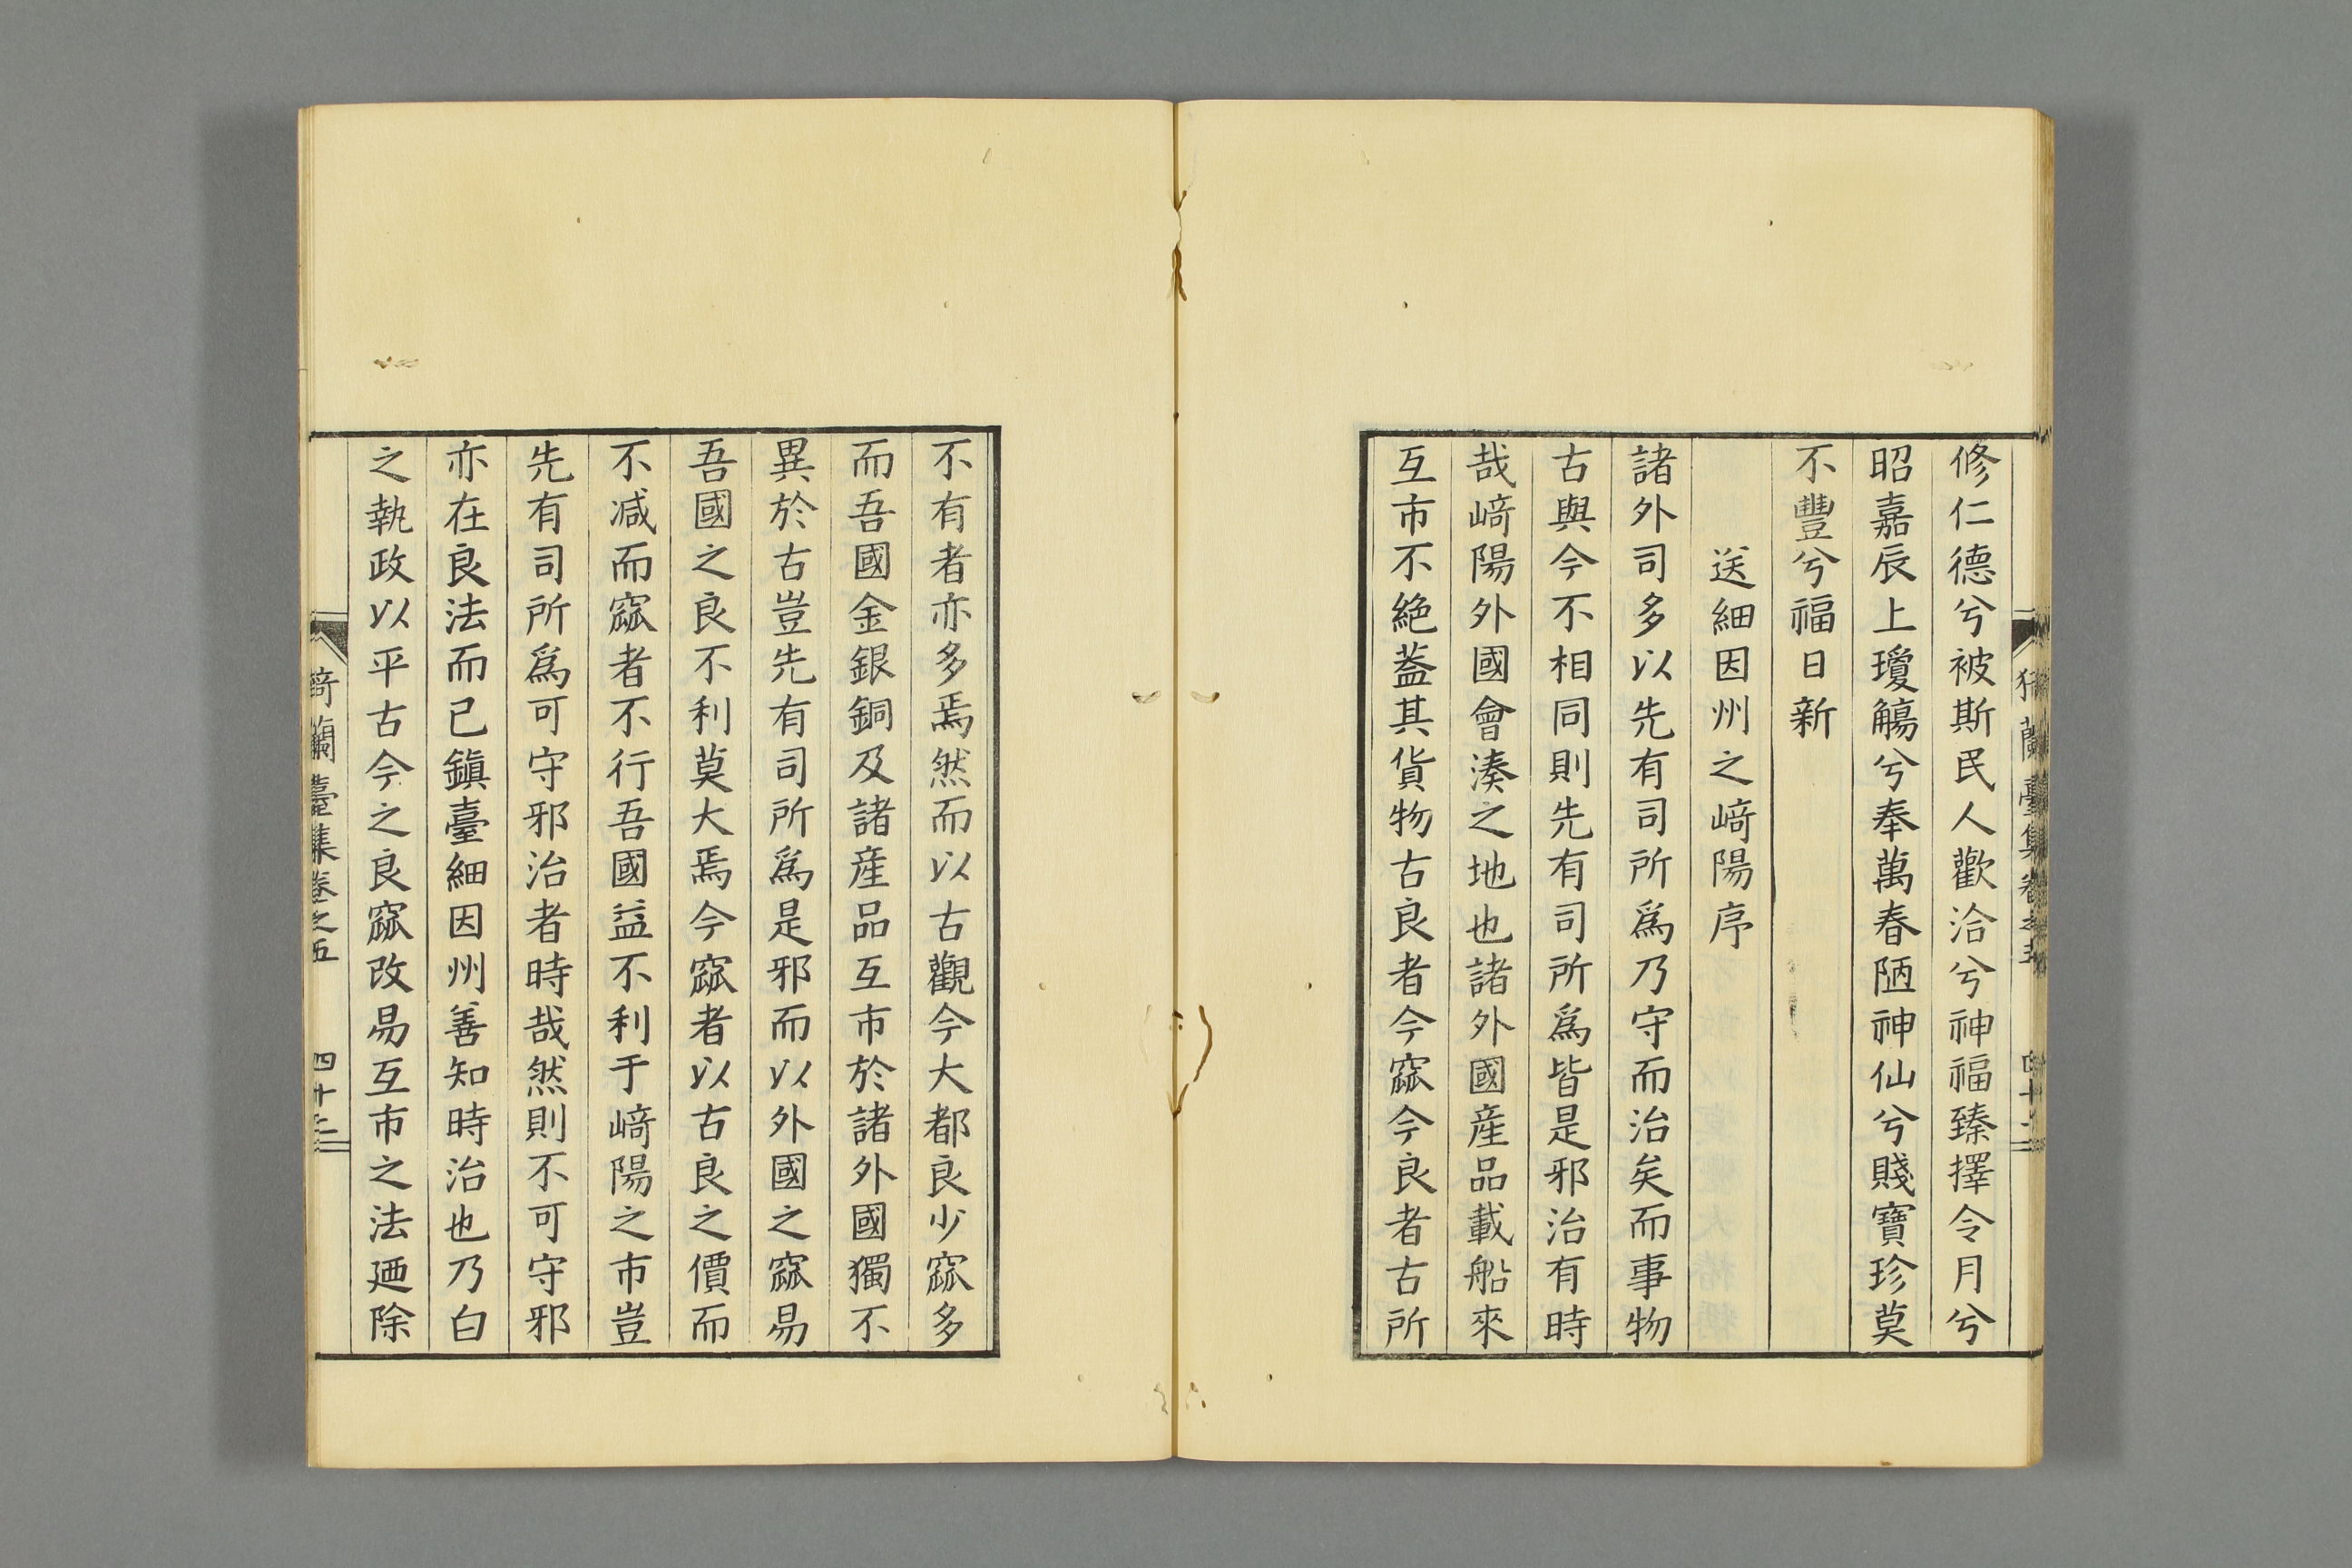 修仁德兮被斯民人歡洽兮神福臻擇令月兮
昭嘉辰上瓊觴兮奉萬春陋神仙兮賤寶珍莫
不豐兮福日新
送細因州之﨑陽序
諸外司多以先有司所爲乃守而治矣而事物
古與今不相同則先有司所爲皆是邪治有時
哉﨑陽外國會湊之地也諸外國産品載船來
互市不絶蓋其貨物古良者今窳今良者古所
不有者亦多焉然而以古觀今大都良少窳多
而吾國金銀銅及諸産品互市於諸外國獨不
異於古豈先有司所爲是邪而以外國之窳易
吾國之良不利莫大焉今窳者以古良之價而
不減而窳者不行吾國益不利于﨑陽之市豈
先有司所爲可守邪治者時哉然則不可守邪
亦在良法而已鎭臺細因州善知時治也乃白
之執政以平古今之良窳改易互市之法廼除
蘭臺集卷之五